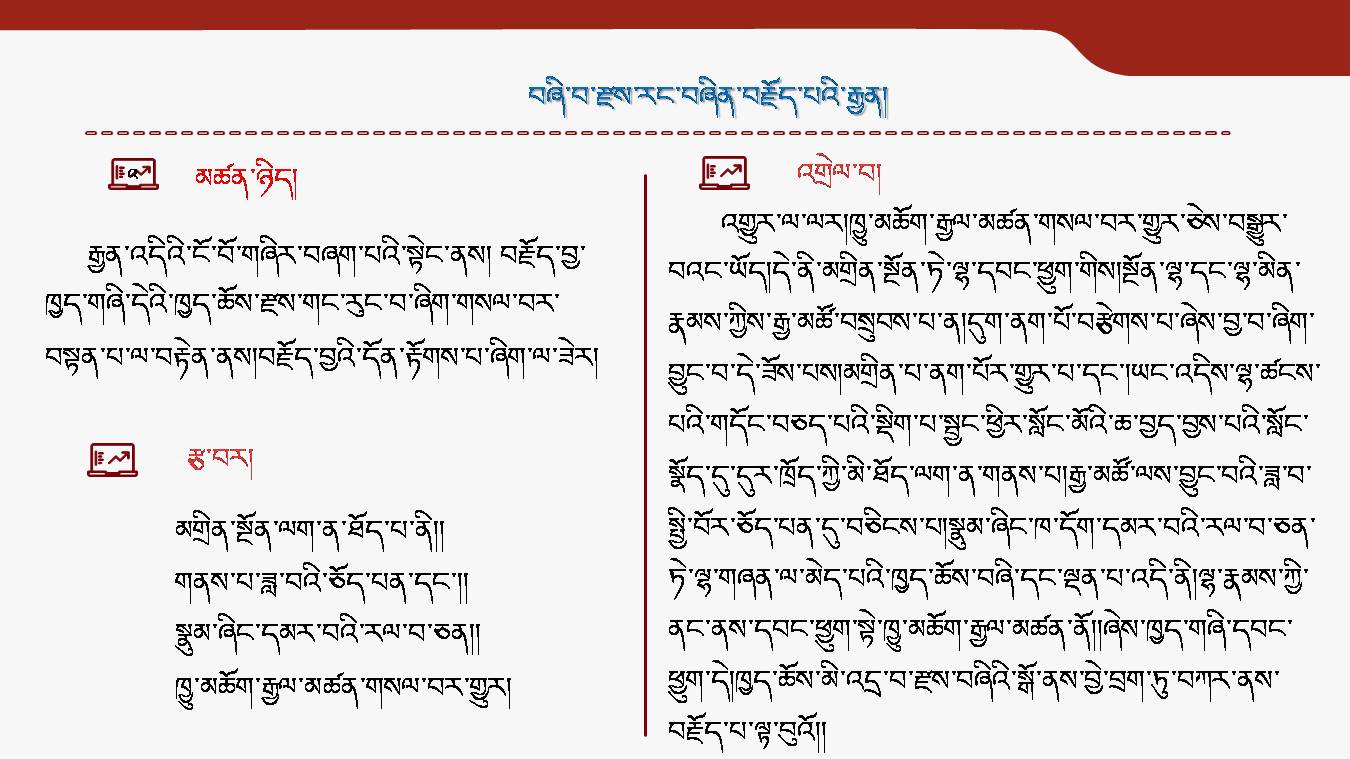 བཞི་བ་རྫས་རང་བཞིན་བརྗོད་པའི་རྒྱན།
མཚན་ཉིད།
རྒྱན་འདིའི་ངོ་བོ་གཞིར་བཞག་པའི་སྟེང་ནས། བརྗོད་བྱ་
ཁྱད་གཞི་དེའི་ཁྱད་ཆོས་རྫས་གང་རུང་བ་ཞིག་གསལ་བར་
བསྟན་པ་ལ་བརྟེན་ནས།བརྗོད་བྱའི་དོན་རྟོགས་པ་ཞིག་ལ་ཟེར།
རྩ་བར།
མགྲིན་སྔོན་ལག་ན་ཐོད་པ་ནི།།
གནས་པ་ཟླ་བའི་ཅོད་པན་དང་།།
སྣུམ་ཞིང་དམར་བའི་རལ་བ་ཅན།།
ཁྱུ་མཆོག་རྒྱལ་མཚན་གསལ་བར་གྱུར།
འགྲེལ་བ།
འགྱུར་ལ་ལར།ཁྱུ་མཆོག་རྒྱལ་མཚན་གསལ་བར་གྱུར་ཅེས་བསྒྱུར་
བའང་ཡོད།དེ་ནི་མགྲིན་སྔོན་ཏེ་ལྷ་དབང་ཕྱུག་གིས།སྔོན་ལྷ་དང་ལྷ་མིན་
རྣམས་ཀྱིས་རྒྱ་མཚོ་བསྲུབས་པ་ན།དུག་ནག་པོ་བརྩེགས་པ་ཞེས་བྱ་བ་ཞིག་
བྱུང་བ་དེ་ཟོས་པས།མགྲིན་པ་ནག་པོར་གྱུར་པ་དང་།ཡང་འདིས་ལྷ་ཚངས་
པའི་གདོང་བཅད་པའི་སྡིག་པ་སྦྱང་ཕྱིར་སློང་མོའི་ཆ་བྱད་བྱས་པའི་སློང་
སྣོད་དུ་དུར་ཁྲོད་ཀྱི་མི་ཐོད་ལག་ན་གནས་པ།རྒྱ་མཚོ་ལས་བྱུང་བའི་ཟླ་བ་
སྤྱི་བོར་ཅོད་པན་དུ་བཅིངས་པ།སྣུམ་ཞིང་ཁ་དོག་དམར་བའི་རལ་བ་ཅན་
ཏེ་ལྷ་གཞན་ལ་མེད་པའི་ཁྱད་ཆོས་བཞི་དང་ལྡན་པ་འདི་ནི།ལྷ་རྣམས་ཀྱི་
ནང་ནས་དབང་ཕྱུག་སྟེ་ཁྱུ་མཆོག་རྒྱལ་མཚན་ནོ།།ཞེས་ཁྱད་གཞི་དབང་
ཕྱུག་དེ།ཁྱད་ཆོས་མི་འདྲ་བ་རྫས་བཞིའི་སྒོ་ནས་བྱེ་བྲག་ཏུ་བཀར་ནས་
བརྗོད་པ་ལྟ་བུའོ།།